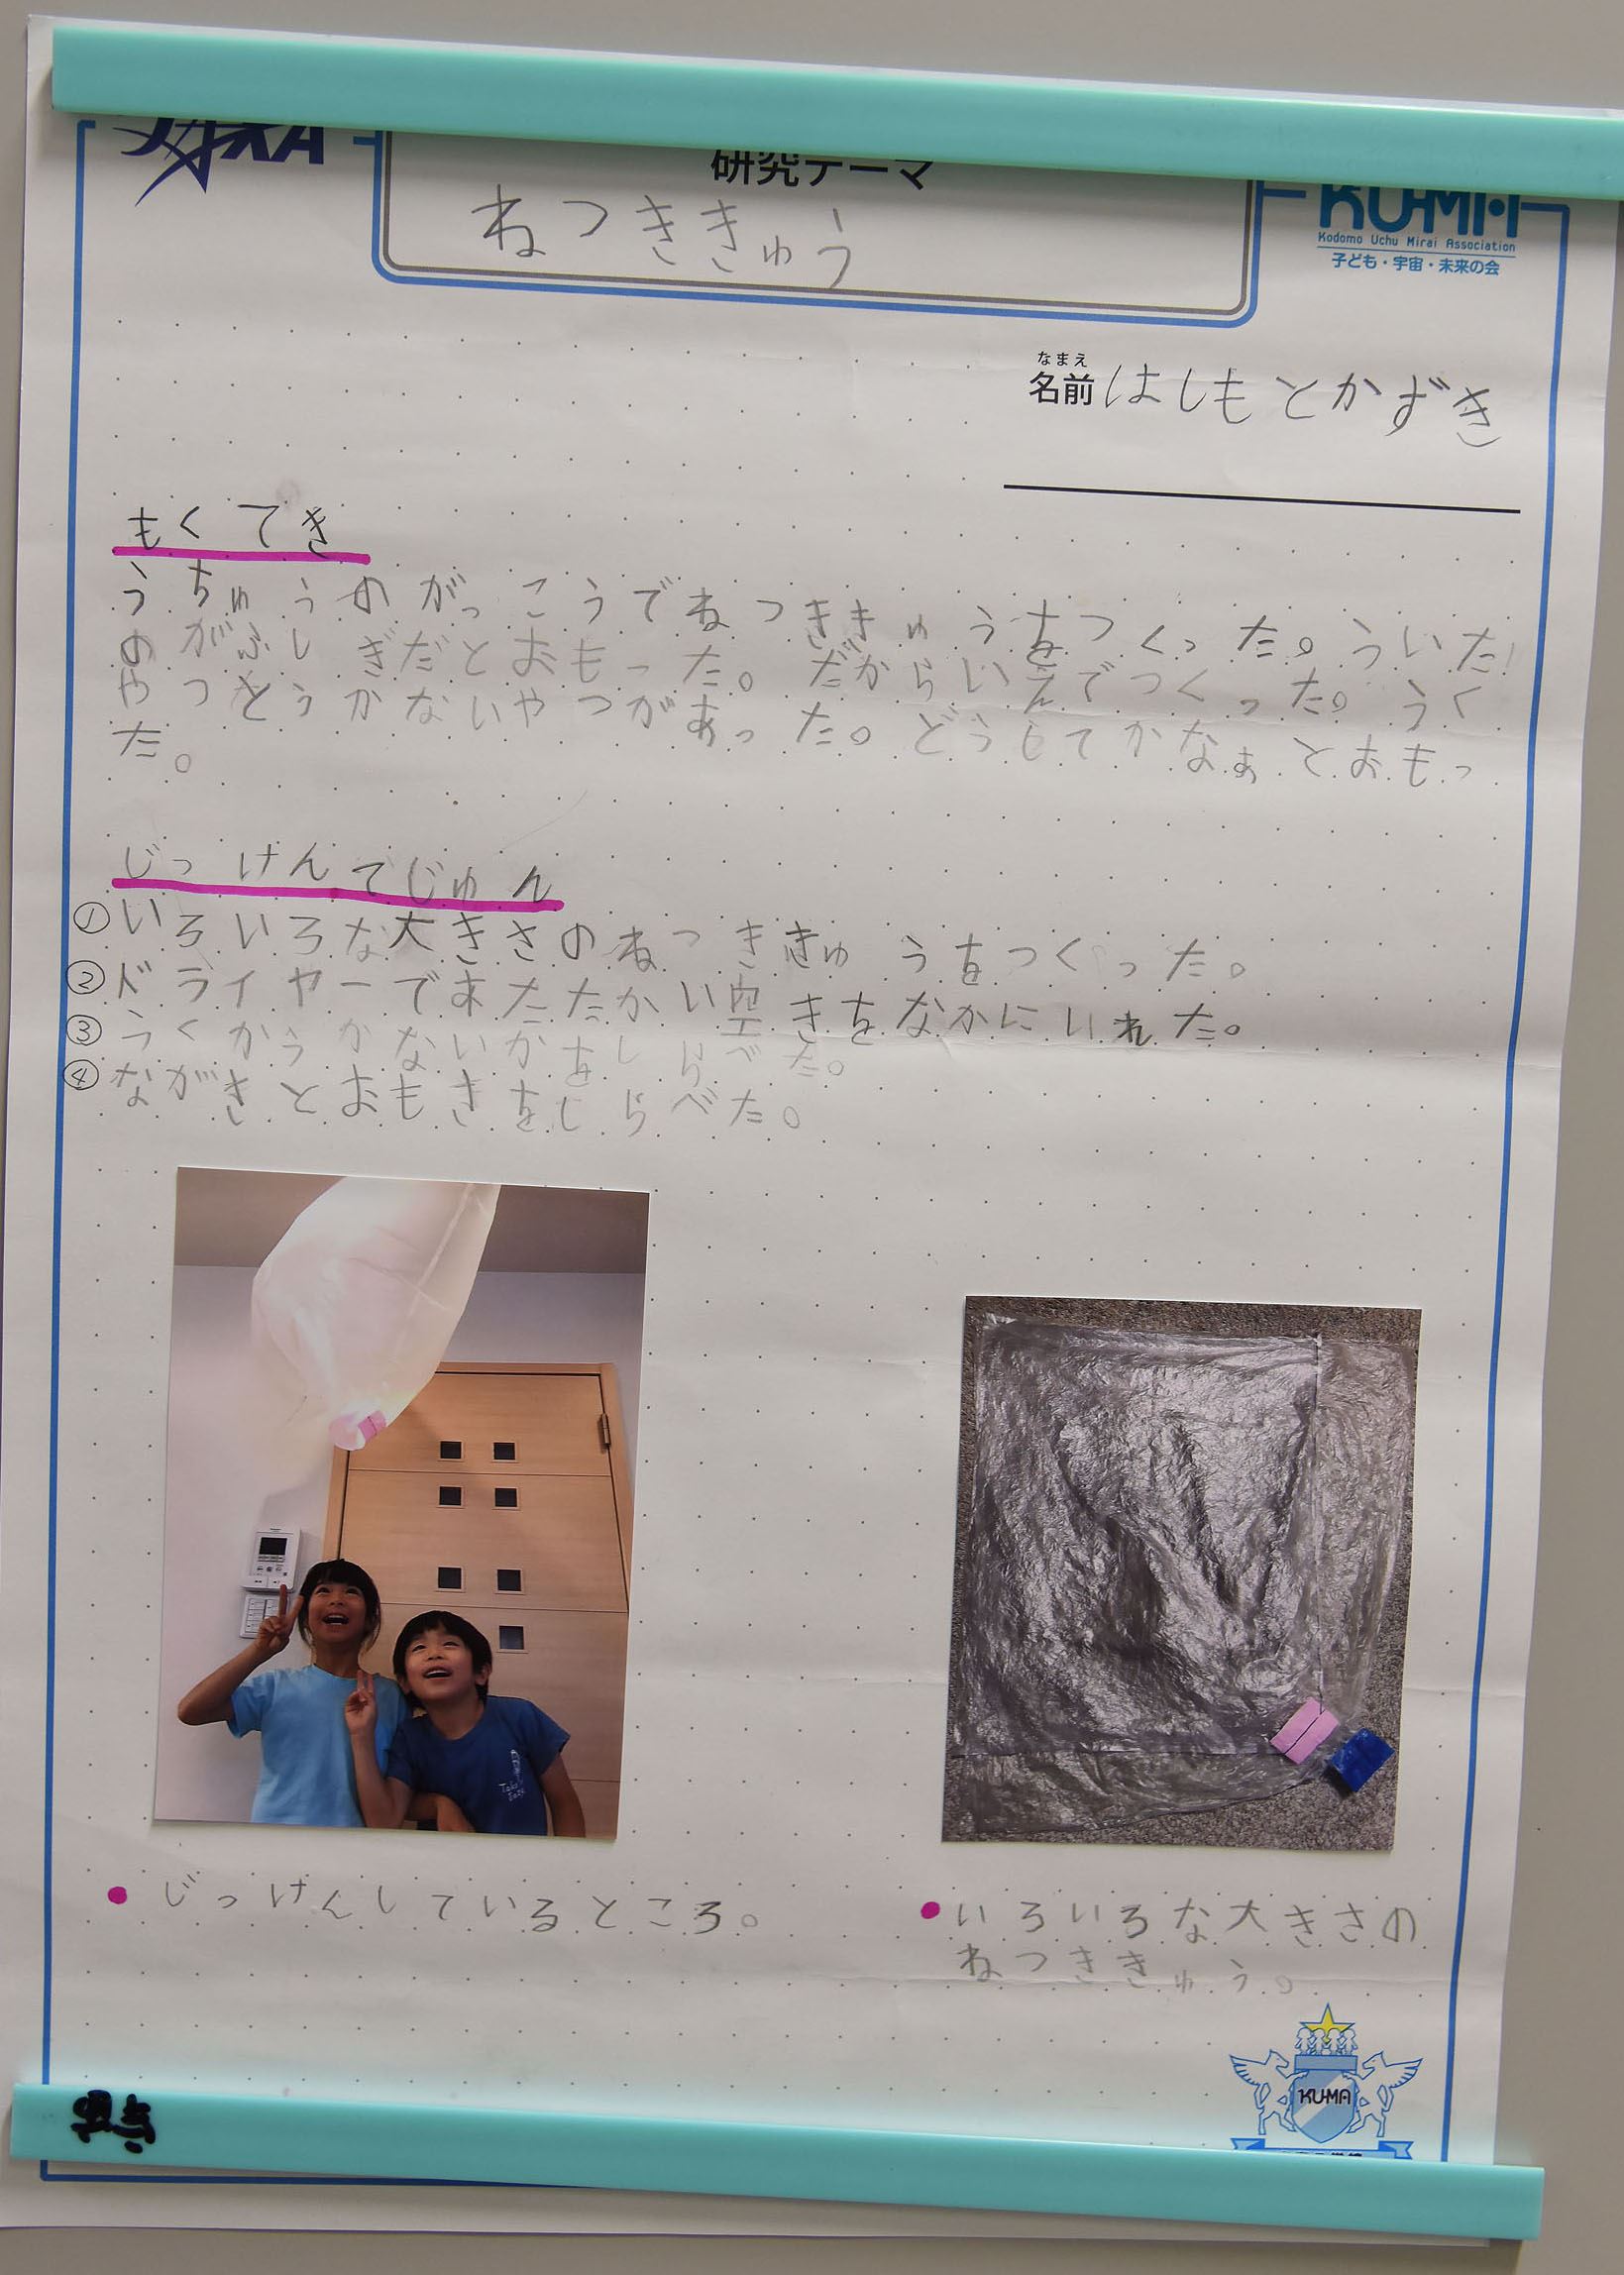 研究テーマ
ねつききゅう
KU-MA
Kodomo Uchu Mirai Association
子ども・宇宙・未来の会
なまえ
名前 はしもとかずき
もくてき
うちゅうのがっこうでねつききゅうをつくった。ういた
のがふしぎだとおもった。だからいえでつくった。うく
やつとうかないやつがあった。どうしてかなぁとおもっ
た。
じっけんてじゅん
①いろいろな大きさのねつききゅうをつくった。
②ドライヤーであたたかい空きをなかにいれた。
③うくかうかないかをしらべた。
④ながさとおもさをしらべた。
●じっけんしているところ。
●いろいろな大きさの
ねつききゅう。
KU-MA